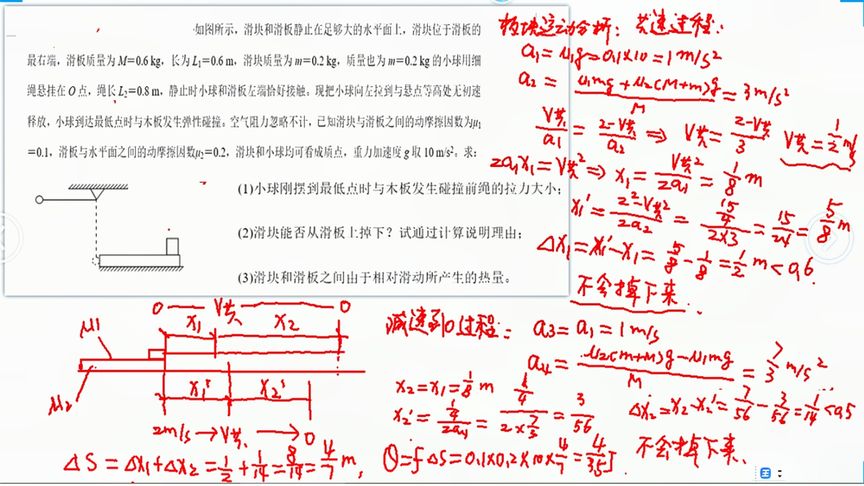 如图所示，滑块和滑板静止在足够大的水平面上，滑块位于滑板的
最右端，滑板质量为 M=0.6 kg，长为 L₁=0.6 m，滑块质量为 m=0.2 kg，质量也为 m=0.2 kg 的小球用细
绳悬挂在 O 点，绳长 L₂=0.8 m，静止时小球和滑板左端恰好接触。现把小球向左拉到与悬点等高处无初速
释放，小球到达最低点时与木板发生弹性碰撞。空气阻力忽略不计，已知滑块与滑板之间的动摩擦因数为μ₁
=0.1，滑板与水平面之间的动摩擦因数μ₂=0.2，滑块和小球均可看成质点，重力加速度 g 取 10 m/s²。求：
(1)小球刚摆到最低点时与木板发生碰撞前绳的拉力大小；
(2)滑块能否从滑板上掉下？试通过计算说明理由；
(3)滑块和滑板之间由于相对滑动所产生的热量。
板块运动分析：共速过程：
a₁=μ₁g=0.1×10=1m/s²
a₂=(μ₁mg+μ₂(M+m)g)/M=3m/s²
V共/a₁=(2-V共)/a₂ ⇒ V共=(2-V共)/3 V共=1/2 m/s
2a₁x₁=V共² ⇒ x₁=V共²/2a₁=1/8 m
x₁'=(2²-V共²)/2a₂=(15/4)/(2×3)=15/24=5/8 m
Δx₁=x₁'-x₁=5/8-1/8=1/2 m<0.6
不会掉下来.
0 V共 0
x₁ x₂
μ1
μ2
x₁' x₂'
2m/s→V共→0
减速到0过程：a3=a₁=1m/s
a₄=(μ₂(m+M)g-μ₁mg)/M=7/3 m/s²
x₂=x₁=1/8 m
x₂'=(1/4)/2a₄=(1/4)/(2×7/3)=3/56
Δx₂=x₂-x₂'=7/56-3/56=1/14<0.5
不会掉下来.
ΔS=Δx₁+Δx₂=1/2+1/14=8/14=4/7 m,
Q=fΔS=0.1×0.2×10×4/7=4/35J